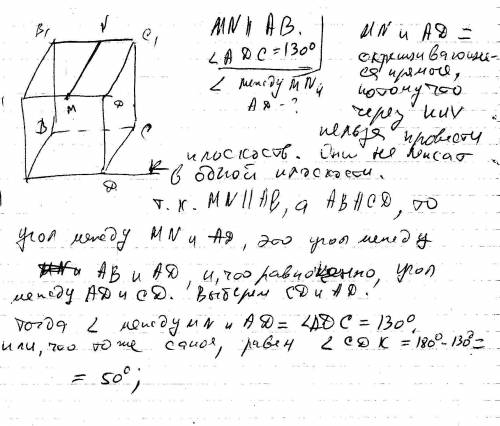 B₁ N C₁
M D
B C
D K
MN ∥ AB.
∠ADC = 130°
∠ между MN и
AD - ?
MN и AD =
скрещивающие-
ся прямые,
потому что
через них
нельзя провести
плоскость. Они не лежат
в одной плоскости.
т. к. MN ∥ AB, а AB ∥ CD, то
угол между MN и AD, это угол между
AB и AD, и, что равноценно, угол
между AD и CD. Выберем CD и AD.
Тогда ∠ между MN и AD = ∠ADC = 130°,
или, что то же самое, равен ∠CDK = 180° - 130° =
= 50°;